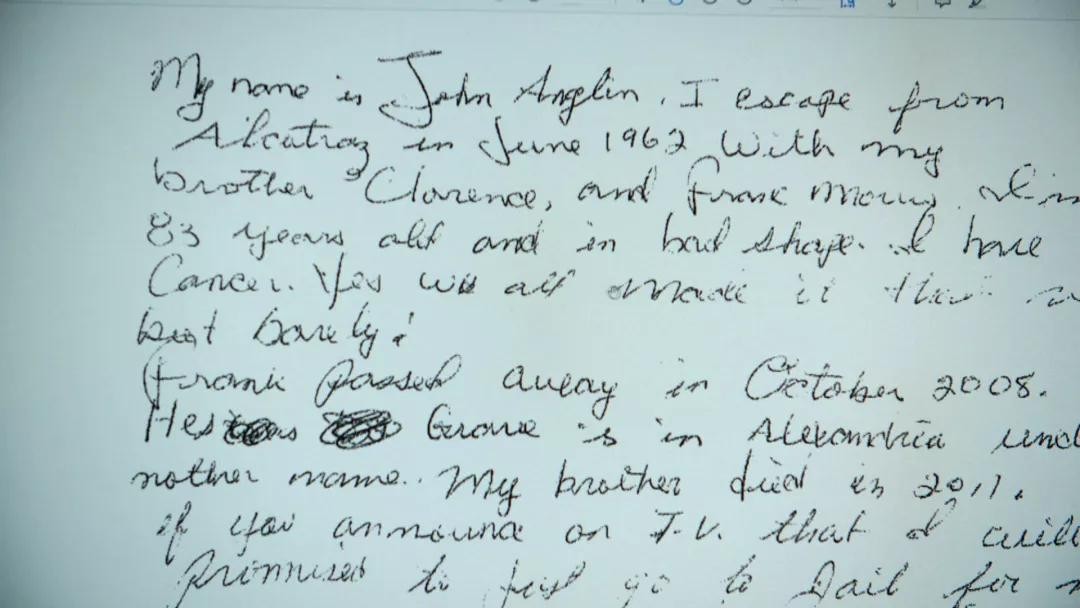 My name is John Anglin, I escape from
Alcatraz in June 1962 With my
brother Clarence, and Frank Morris, I'm
83 years old and in bad shape. I have
Cancer. Yes we all made it that
but barely!
Frank passed away in October 2008.
Hes Grave is in Alexandria und
nother name. My brother died in 2011.
if you announce on T.V. that I will
promised to first go to Jail for